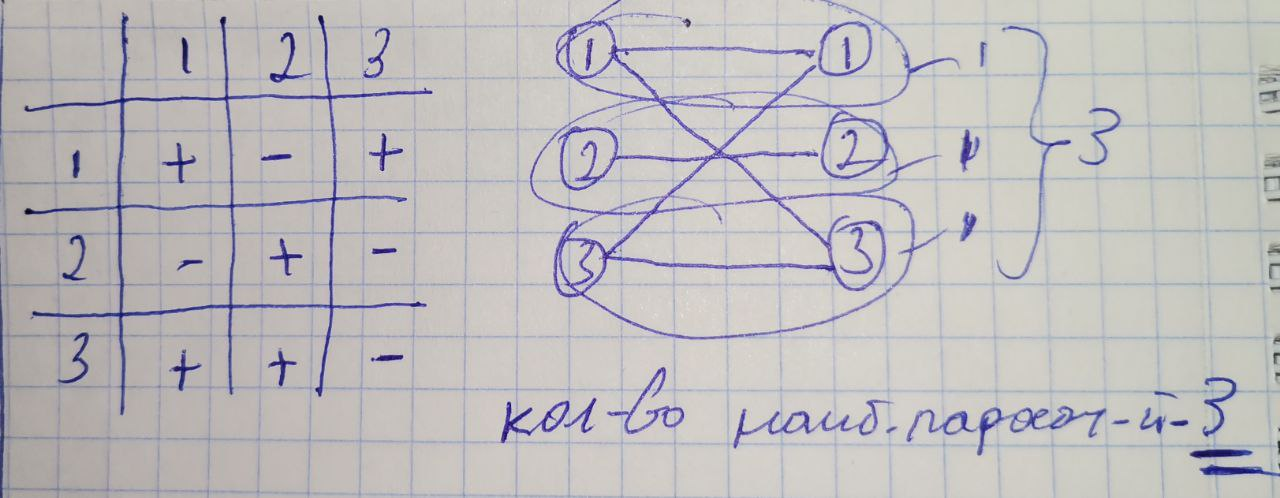 1 2 3
1 + - +
2 - + -
3 + + -
1 1 1
2 2 1
3 3 1
3
кол-во наиб.паросоч-й-3